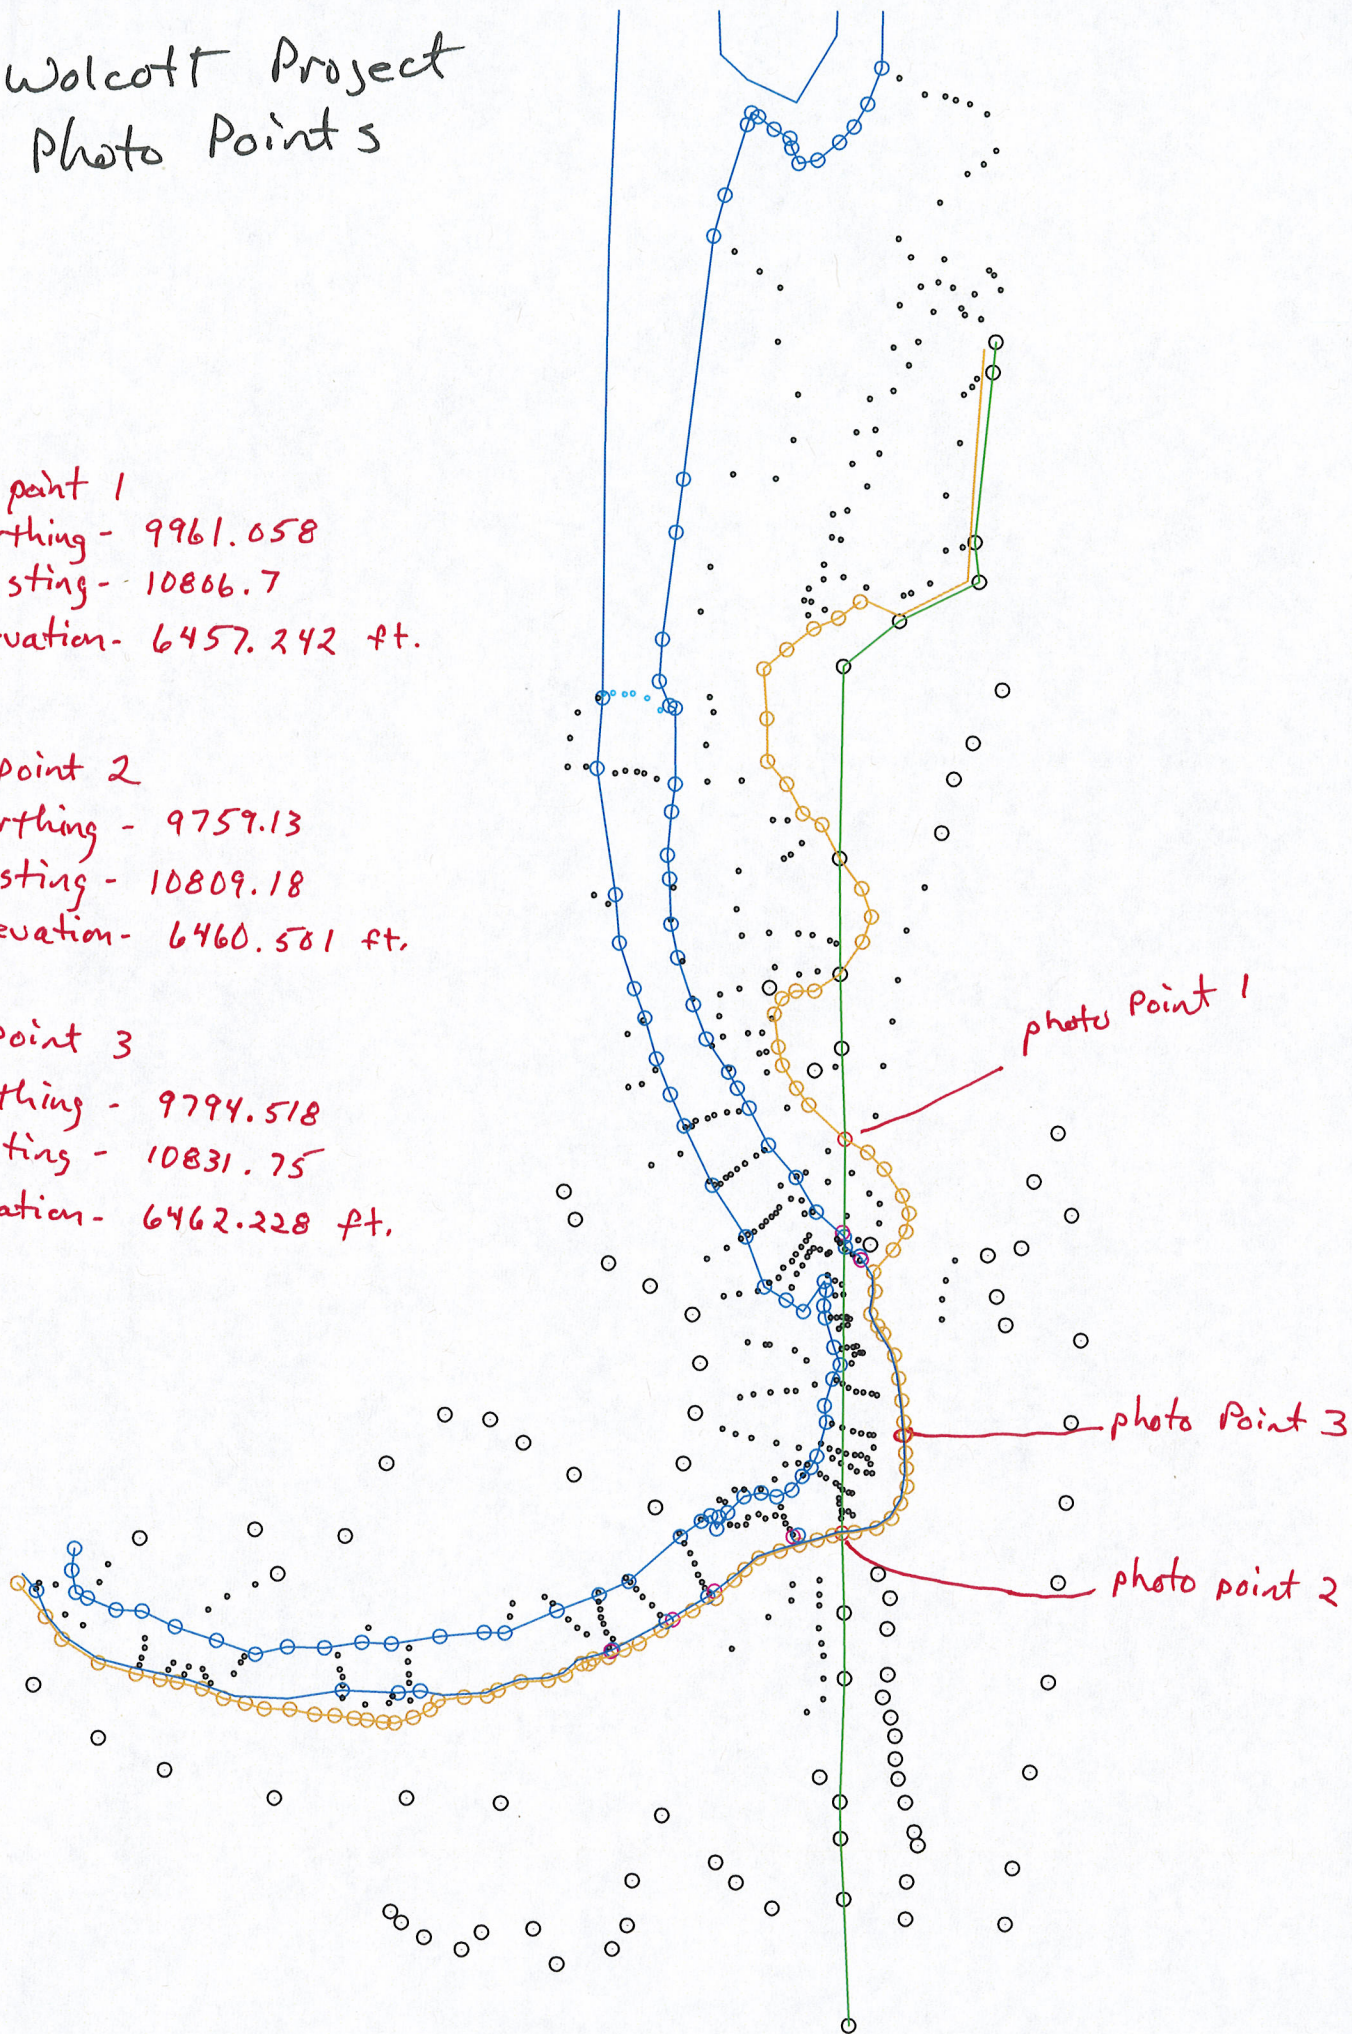 Wolcott Project
Photo Points
point 1
thing - 9961.058
sting - 10806.7
vation - 6457.242 ft.
point 2
rthing - 9759.13
sting - 10809.18
evation - 6460.501 ft.
photo Point 1
point 3
thing - 9794.518
ting - 10831.75
ation - 6462.228 ft.
photo Point 3
photo point 2